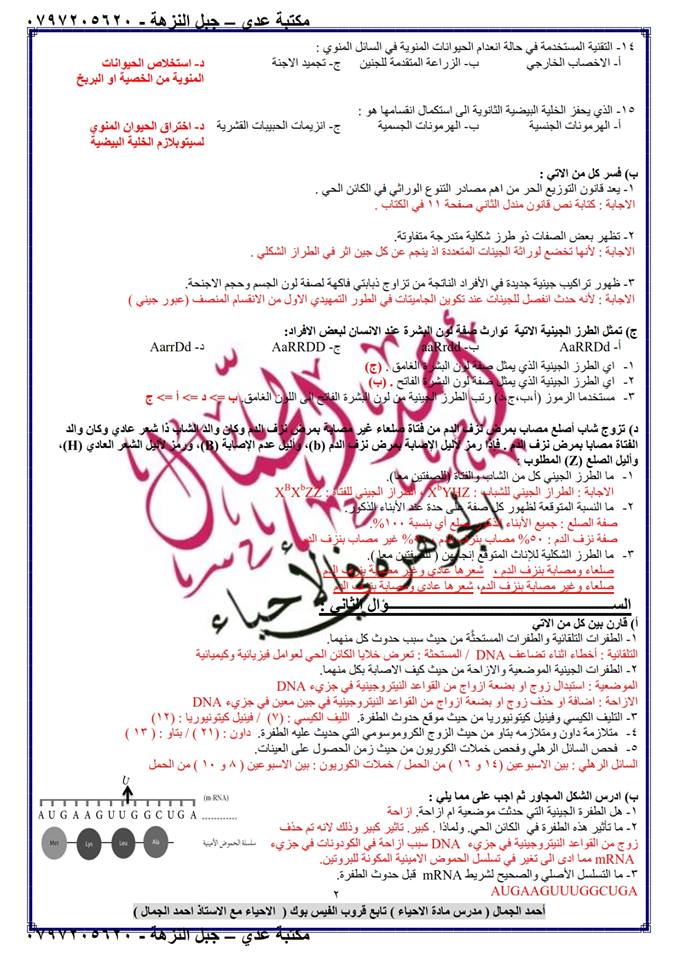 مكتبة عدي – جبل النزهة - ٠٧٩٧٢٠٥٦٢٠
١٤- التقنية المستخدمة في حالة انعدام الحيوانات المنوية في السائل المنوي :
أ- الاخصاب الخارجي ب- الزراعة المتقدمة للجنين ج- تجميد الاجنة د- استخلاص الحيوانات
المنوية من الخصية او البربخ
١٥- الذي يحفز الخلية البيضية الثانوية الى استكمال انقسامها هو :
أ- الهرمونات الجنسية ب- الهرمونات الجسمية ج- انزيمات الحبيبات القشرية د- اختراق الحيوان المنوي
لسيتوبلازم الخلية البيضية
ب) فسر كل من الاتي :
١- يعد قانون التوزيع الحر من اهم مصادر التنوع الوراثي في الكائن الحي .
الاجابة : كتابة نص قانون مندل الثاني صفحة ١١ في الكتاب .
٢- تظهر بعض الصفات ذو طرز شكلية متدرجة متفاوتة.
الاجابة : لأنها تخضع لوراثة الجينات المتعددة اذ ينجم عن كل جين اثر في الطراز الشكلي .
٣- ظهور تراكيب جينية جديدة في الأفراد الناتجة من تزاوج ذبابتي فاكهة لصفة لون الجسم وحجم الاجنحة.
الاجابة : لأنه حدث انفصل للجينات عند تكوين الجاميتات في الطور التمهيدي الاول من الانقسام المنصف (عبور جيني )
ج) تمثل الطرز الجينية الاتية توارث صفة لون البشرة عند الانسان لبعض الافراد:
أ- AaRRDd ب- aaRrdd ج- AaRRDD د- AarrDd
١- اي الطرز الجينية الذي يمثل صفة لون البشرة الغامق . (ج)
٢- اي الطرز الجينية الذي يمثل صفة لون البشرة الفاتح . (ب)
٣- مستخدما الرموز (أ،ب،ج،د) رتب الطرز الجينية من لون البشرة الفاتح الى اللون الغامق. ب => د => أ => ج
د) تزوج شاب أصلع مصاب بمرض نزف الدم من فتاة صلعاء غير مصابة بمرض نزف الدم وكان والد الشاب ذا شعر عادي وكان والد
الفتاة مصابا بمرض نزف الدم . فإذا رمز لأليل الإصابة بمرض نزف الدم (b)، وأليل عدم الإصابة (B)، ورمز لأليل الشعر العادي (H)،
وأليل الصلع (Z) المطلوب :
١- ما الطرز الجيني لكل من الشاب والفتاة (للصفتين معا).
الاجابة : الطراز الجيني للشباب : XᵇYHZ ، الطراز الجيني للفتاة : XᴮXᵇZZ
٢- ما النسبة المتوقعة لظهور كل صفة على حدة عند الأبناء الذكور.
صفة الصلع : جميع الأبناء الذكور صلع أي بنسبة ١٠٠%.
صفة نزف الدم : ٥٠% مصاب بنزف الدم ٥٠% غير مصاب بنزف الدم
٣- ما الطرز الشكلية للإناث المتوقع إنجابهن ( للصفتين معا ).
صلعاء ومصابة بنزف الدم ، شعرها عادي وغير مصابة بنزف الدم ،
صلعاء وغير مصابة بنزف الدم، شعرها عادي ومصابة بنزف الدم
الســـــــــؤال الثاني :
أ) قارن بين كل من الاتي
١- الطفرات التلقائية والطفرات المستحثَّة من حيث سبب حدوث كل منهما.
التلقائية : أخطاء اثناء تضاعف DNA / المستحثة : تعرض خلايا الكائن الحي لعوامل فيزيائية وكيميائية
٢- الطفرات الجينية الموضعية والازاحة من حيث كيف الاصابة بكل منهما.
الموضعية : استبدال زوج او بضعة ازواج من القواعد النيتروجينية في جزيء DNA
الازاحة : اضافة او حذف زوج او بضعة ازواج من القواعد النيتروجينية في جين معين في جزيء DNA
٣- التليف الكيسي وفينيل كيتونيوريا من حيث موقع حدوث الطفرة. الليف الكيسي : (٧) / فينيل كيتونيوريا : (١٢)
٤- متلازمة داون ومتلازمه بتاو من حيث الزوج الكروموسومي التي حديث عليه الطفرة. داون : (٢١ ) / بتاو : ( ١٣ )
٥- فحص السائل الرهلي وفحص خملات الكوريون من حيث زمن الحصول على العينات.
السائل الرهلي : بين الاسبوعين (١٤ و ١٦ ) من الحمل / خملات الكوريون : بين الاسبوعين ( ٨ و ١٠ ) من الحمل
ب) ادرس الشكل المجاور ثم اجب على مما يلي :
١- هل الطفرة الجينية التي حدثت موضعية ام ازاحة. ازاحة
٢- ما تأثير هذه الطفرة في الكائن الحي. ولماذا . كبير. تاثير كبير وذلك لانه تم حذف
زوج من القواعد النيتروجينية في جزيء DNA سبب ازاحة في الكودونات في جزيء
mRNA مما ادى الى تغير في تسلسل الحموض الامينية المكونة للبروتين.
٣- ما التسلسل الأصلي والصحيح لشريط mRNA قبل حدوث الطفرة.
AUGAAGUUUGGCUGA
U
(m-RNA)
A U G A A G U U G G C U G A
Met Lys Leu Ala
سلسلة الحموض الأمينية
٢
أحمد الجمال ( مدرس مادة الاحياء ) تابع قروب الفيس بوك ( الاحياء مع الاستاذ احمد الجمال )
مكتبة عدي – جبل النزهة - ٠٧٩٧٢٠٥٦٢٠
أحمد الجمال
الجوهرة في الأحياء